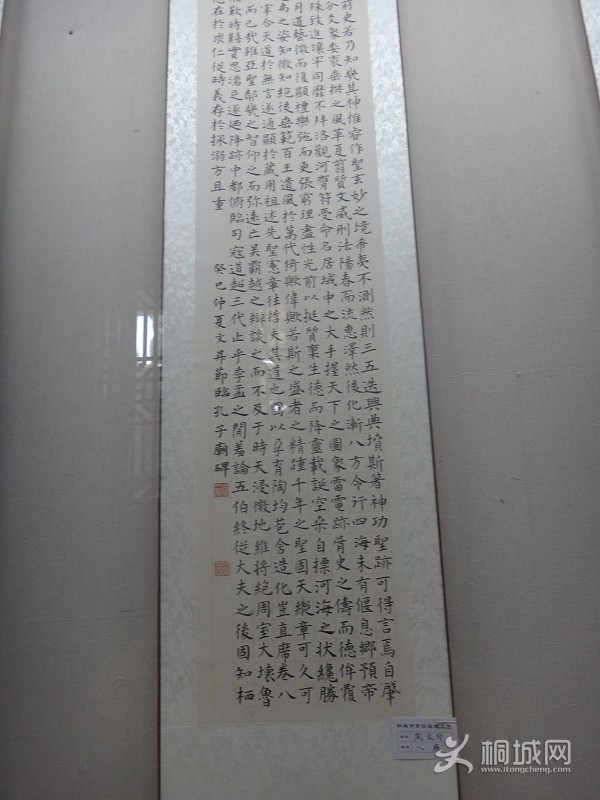 前史若乃知幾其神惟睿作聖玄妙之境希夷不測然則三五迭興典墳斯著神功聖跡可得言焉自肇
分文象委裘垂拱之風革夏翦質文威刑法陽春而流惠澤然後化漸八方令行四海未有偃息鄉預帝
殊致進讓罕同靡不拜洛觀河膺符受命名居域中之大手握天下之圖象雷電跡胥史之儔而德侔覆
月道藝微而復顯禮樂弛而更張窮理盡性光前以挺質稟生德而降靈載誕空桑自摽河海之狀纔勝
禹之姿知微知絕後垂範百王遺風於萬代猗歟偉歟若斯之盛者之精踵千年之聖固天縱章可久可
宰合天道於無言遂通顯於藏用祖述先聖憲章往哲夫其道也固以孕育陶均苞含造化豈直席卷八
而已哉雖亞聖鄰幾之智仰之而弥遠亡吳霸越之辯談之而不及于時天浸微地維將絕周室大壞魯
歎時艱實思濡足遂迺降跡中都俯臨司寇道超三代止乎季孟之間羞論五伯終從大夫之後固知栖
在於求仁從時義存於拯溺方且重
癸巳仲夏文昇節臨孔子廟碑
桐城网
www.itongcheng.com